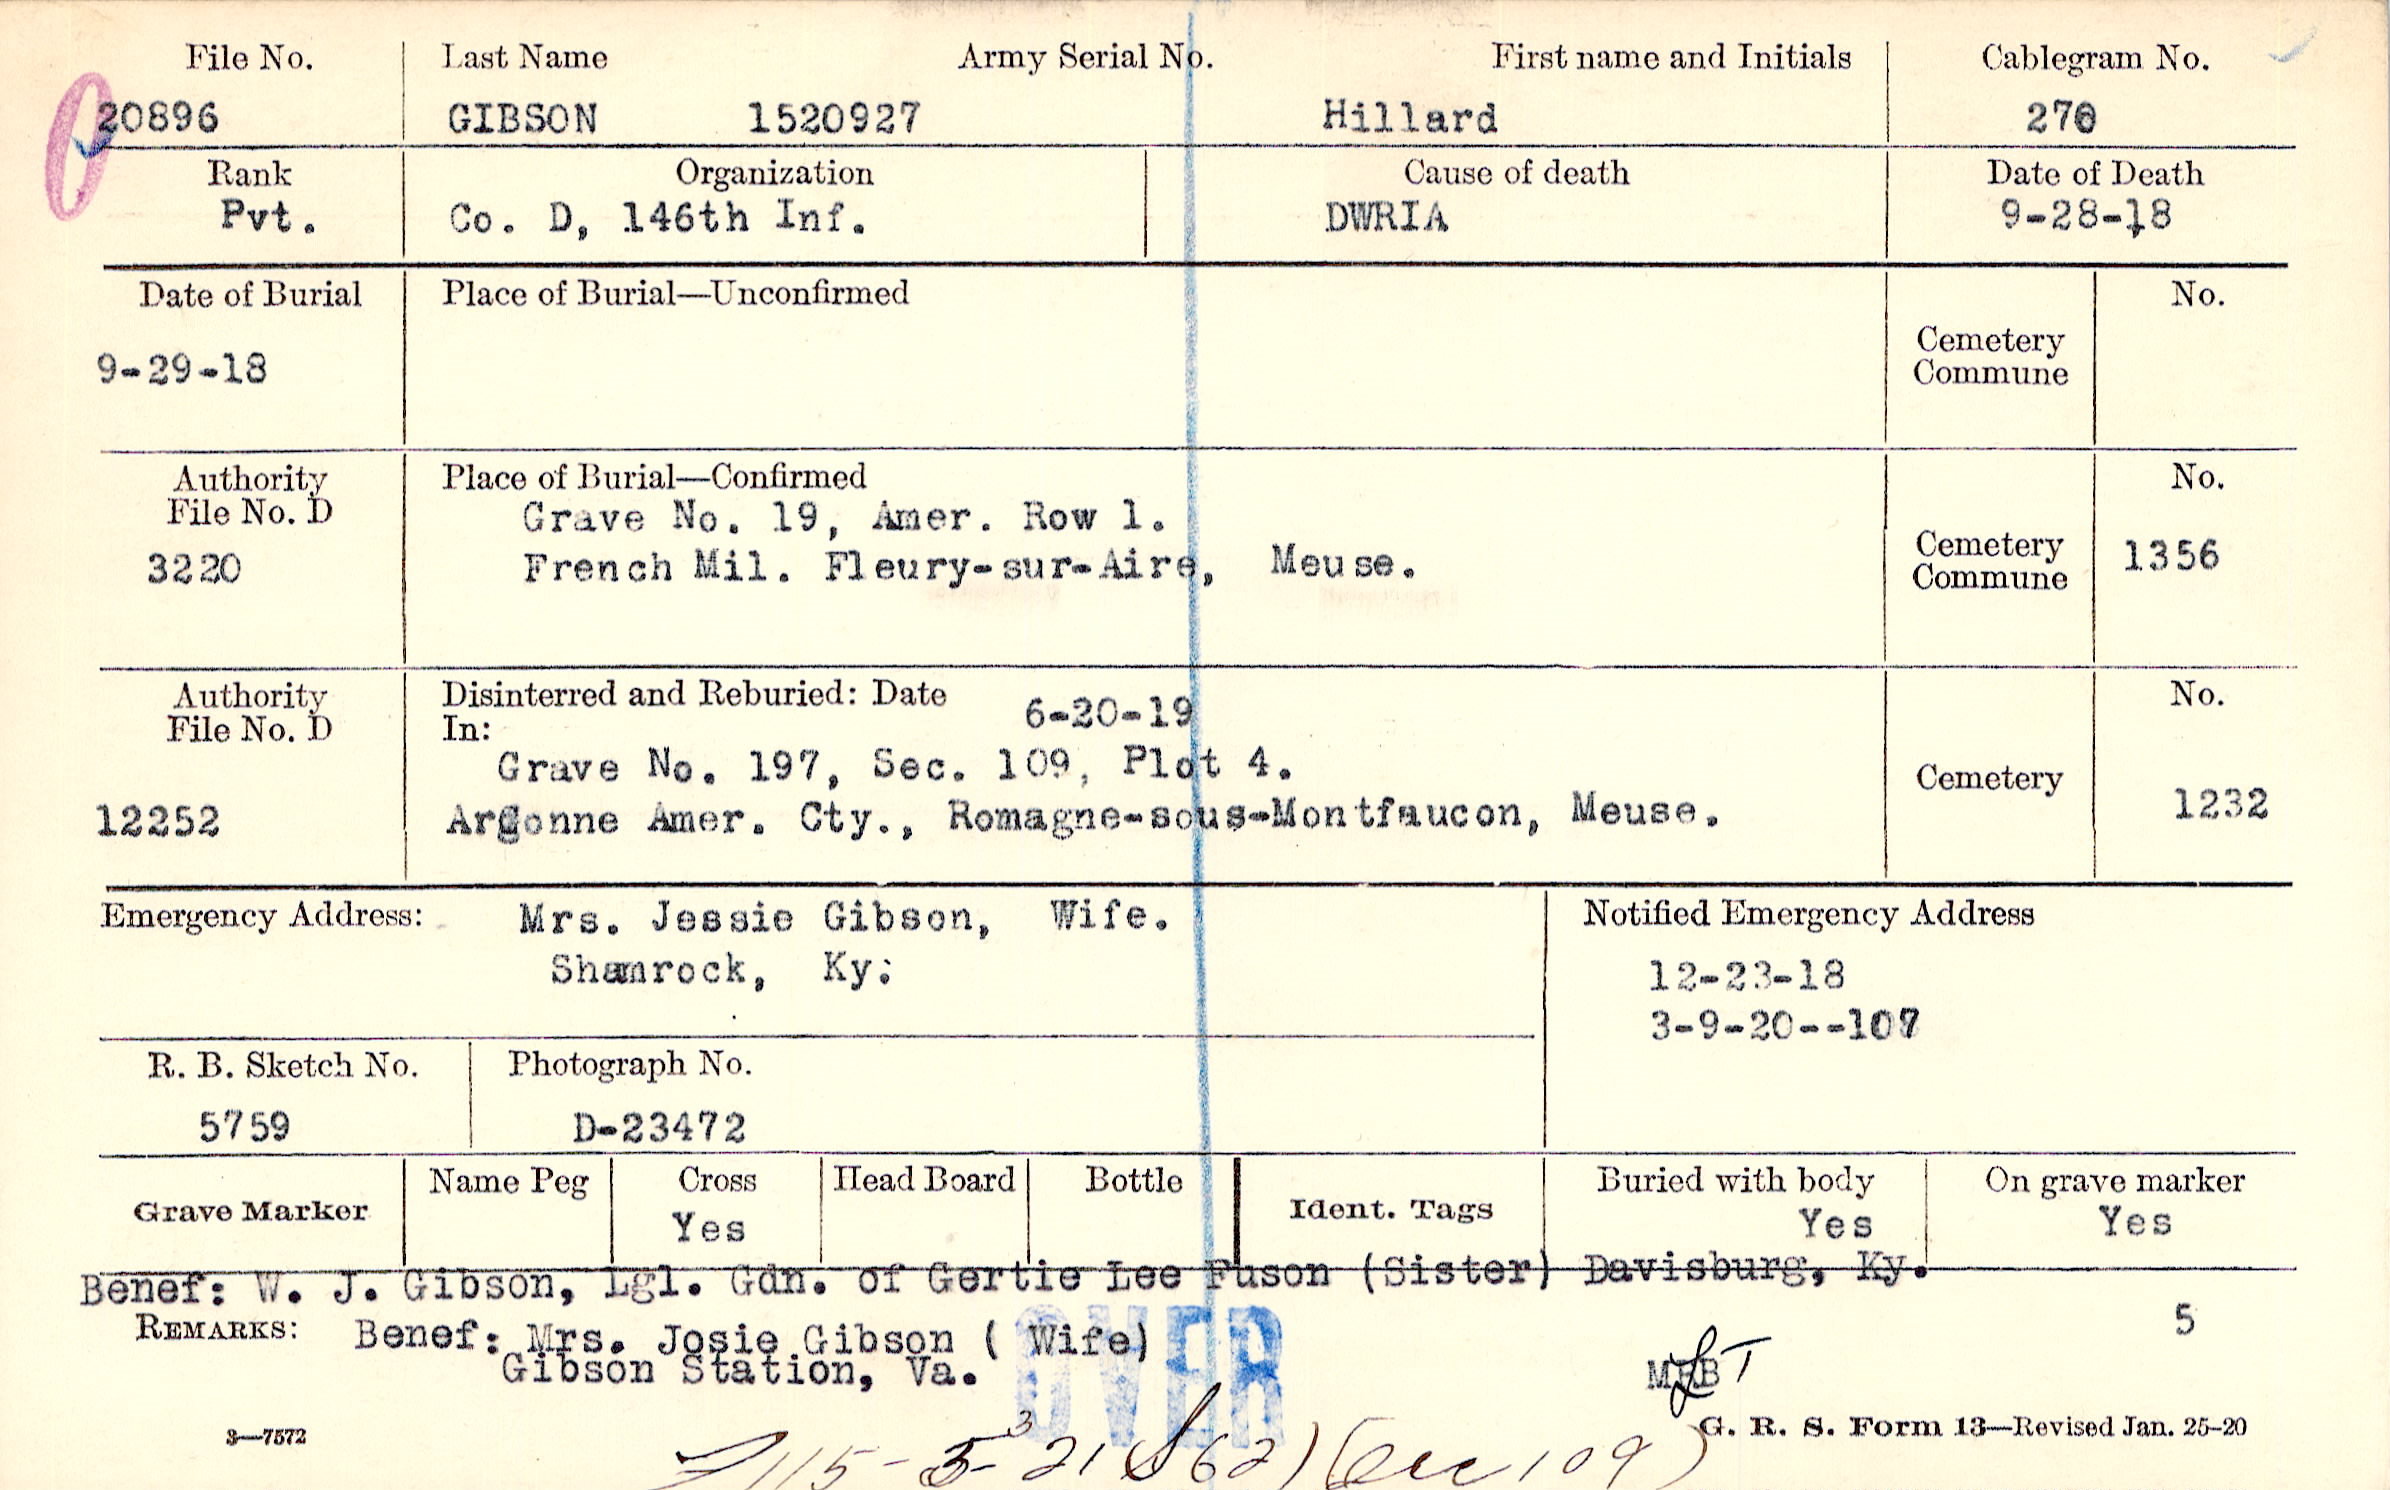 File No. Last Name Army Serial No. First name and Initials Cablegram No.
20896 GIBSON 1520927 Hillard 276
Rank Organization Cause of death Date of Death
Pvt. Co. D, 146th Inf. DWRIA 9-28-18
Date of Burial Place of Burial—Unconfirmed No.
9-29-18 Cemetery
Commune
Authority Place of Burial—Confirmed No.
File No. D Grave No. 19, Amer. Row 1.
3220 French Mil. Fleury-sur-Aire, Meuse. Cemetery 1356
Commune
Authority Disinterred and Reburied: Date 6-20-19 No.
File No. D In:
Grave No. 197, Sec. 109, Plot 4. Cemetery
12252 Argonne Amer. Cty., Romagne-sous-Montfaucon, Meuse. 1232
Emergency Address: Mrs. Jessie Gibson, Wife. Notified Emergency Address
Shamrock, Ky: 12-23-18
3-9-20--107
R. B. Sketch No. Photograph No.
5759 D-23472
Grave Marker Name Peg Cross Head Board Bottle Ident. Tags Buried with body On grave marker
Yes Yes Yes
Benef: W. J. Gibson, Lgl. Gdn. of Gertie Lee Fuson (Sister) Davisburg, Ky.
REMARKS: Benef: Mrs. Josie Gibson ( Wife) 5
Gibson Station, Va.
OVER
3—7572 G. R. S. Form 13—Revised Jan. 25-20